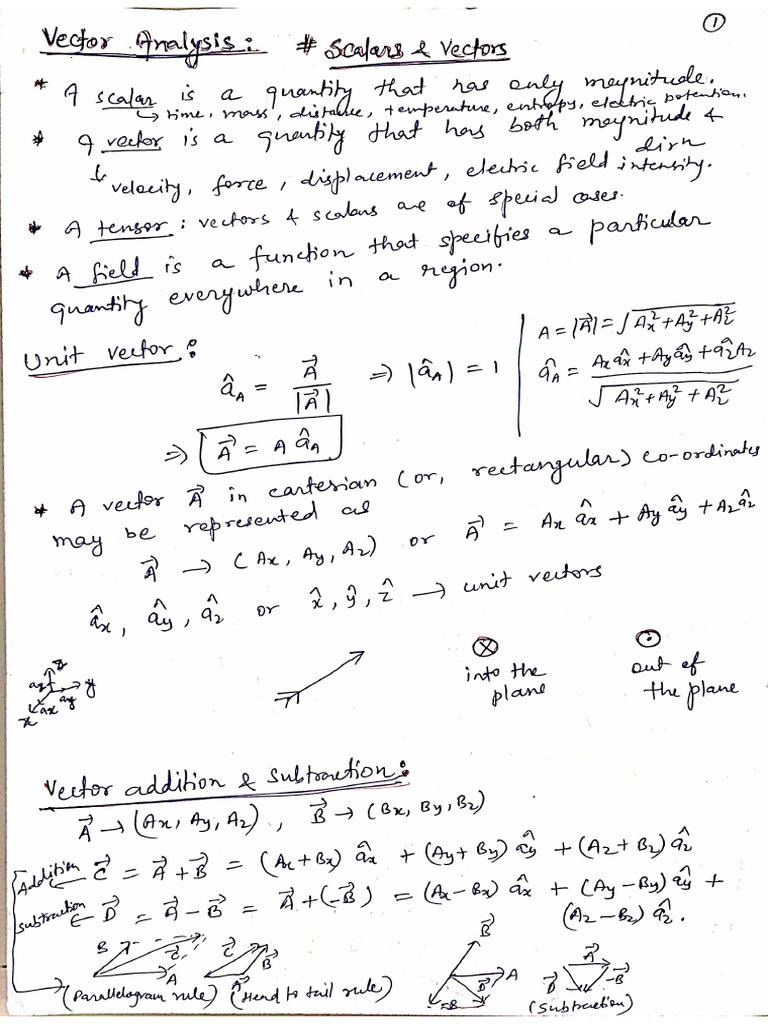 ①
Vector Analysis: # Scalars & Vectors
* A scalar is a quantity that has only magnitude.
↳ time, mass, distance, temperature, entropy, electric potential.
* A vector is a quantity that has both magnitude & dirn
↳ velocity, force, displacement, electric field intensity.
* A tensor: vectors & scalars are of special cases.
* A field is a function that specifies a particular
quantity everywhere in a region.
Unit vector:
â_A = A⃗ / |A⃗| ⇒ |â_A| = 1
A = |A⃗| = √(Ax² + Ay² + Az²)
â_A = (Ax âx + Ay ây + âz Az) / √(Ax² + Ay² + Az²)
⇒ A⃗ = A â_A
* A vector A⃗ in cartesian (or, rectangular) co-ordinates
may be represented as
A⃗ → (Ax, Ay, Az) or A⃗ = Ax âx + Ay ây + Az âz
âx, ây, âz or x̂, ŷ, ẑ → unit vectors
z
az
y
ay
ax
x
⊗
into the
plane
⊙
out of
the plane
Vector addition & subtraction:
A⃗ → (Ax, Ay, Az), B⃗ → (Bx, By, Bz)
Addition ← C⃗ = A⃗ + B⃗ = (Ax + Bx) âx + (Ay + By) ây + (Az + Bz) âz
subtraction ← D⃗ = A⃗ − B⃗ = A⃗ + (−B⃗) = (Ax − Bx) âx + (Ay − By) ây +
(Az − Bz) âz.
B C⃗ A
C⃗ B⃗ A⃗
B⃗ A D⃗ −B
A⃗ D⃗ −B⃗
(Parallelogram rule) (Head to tail rule)
(Subtraction)